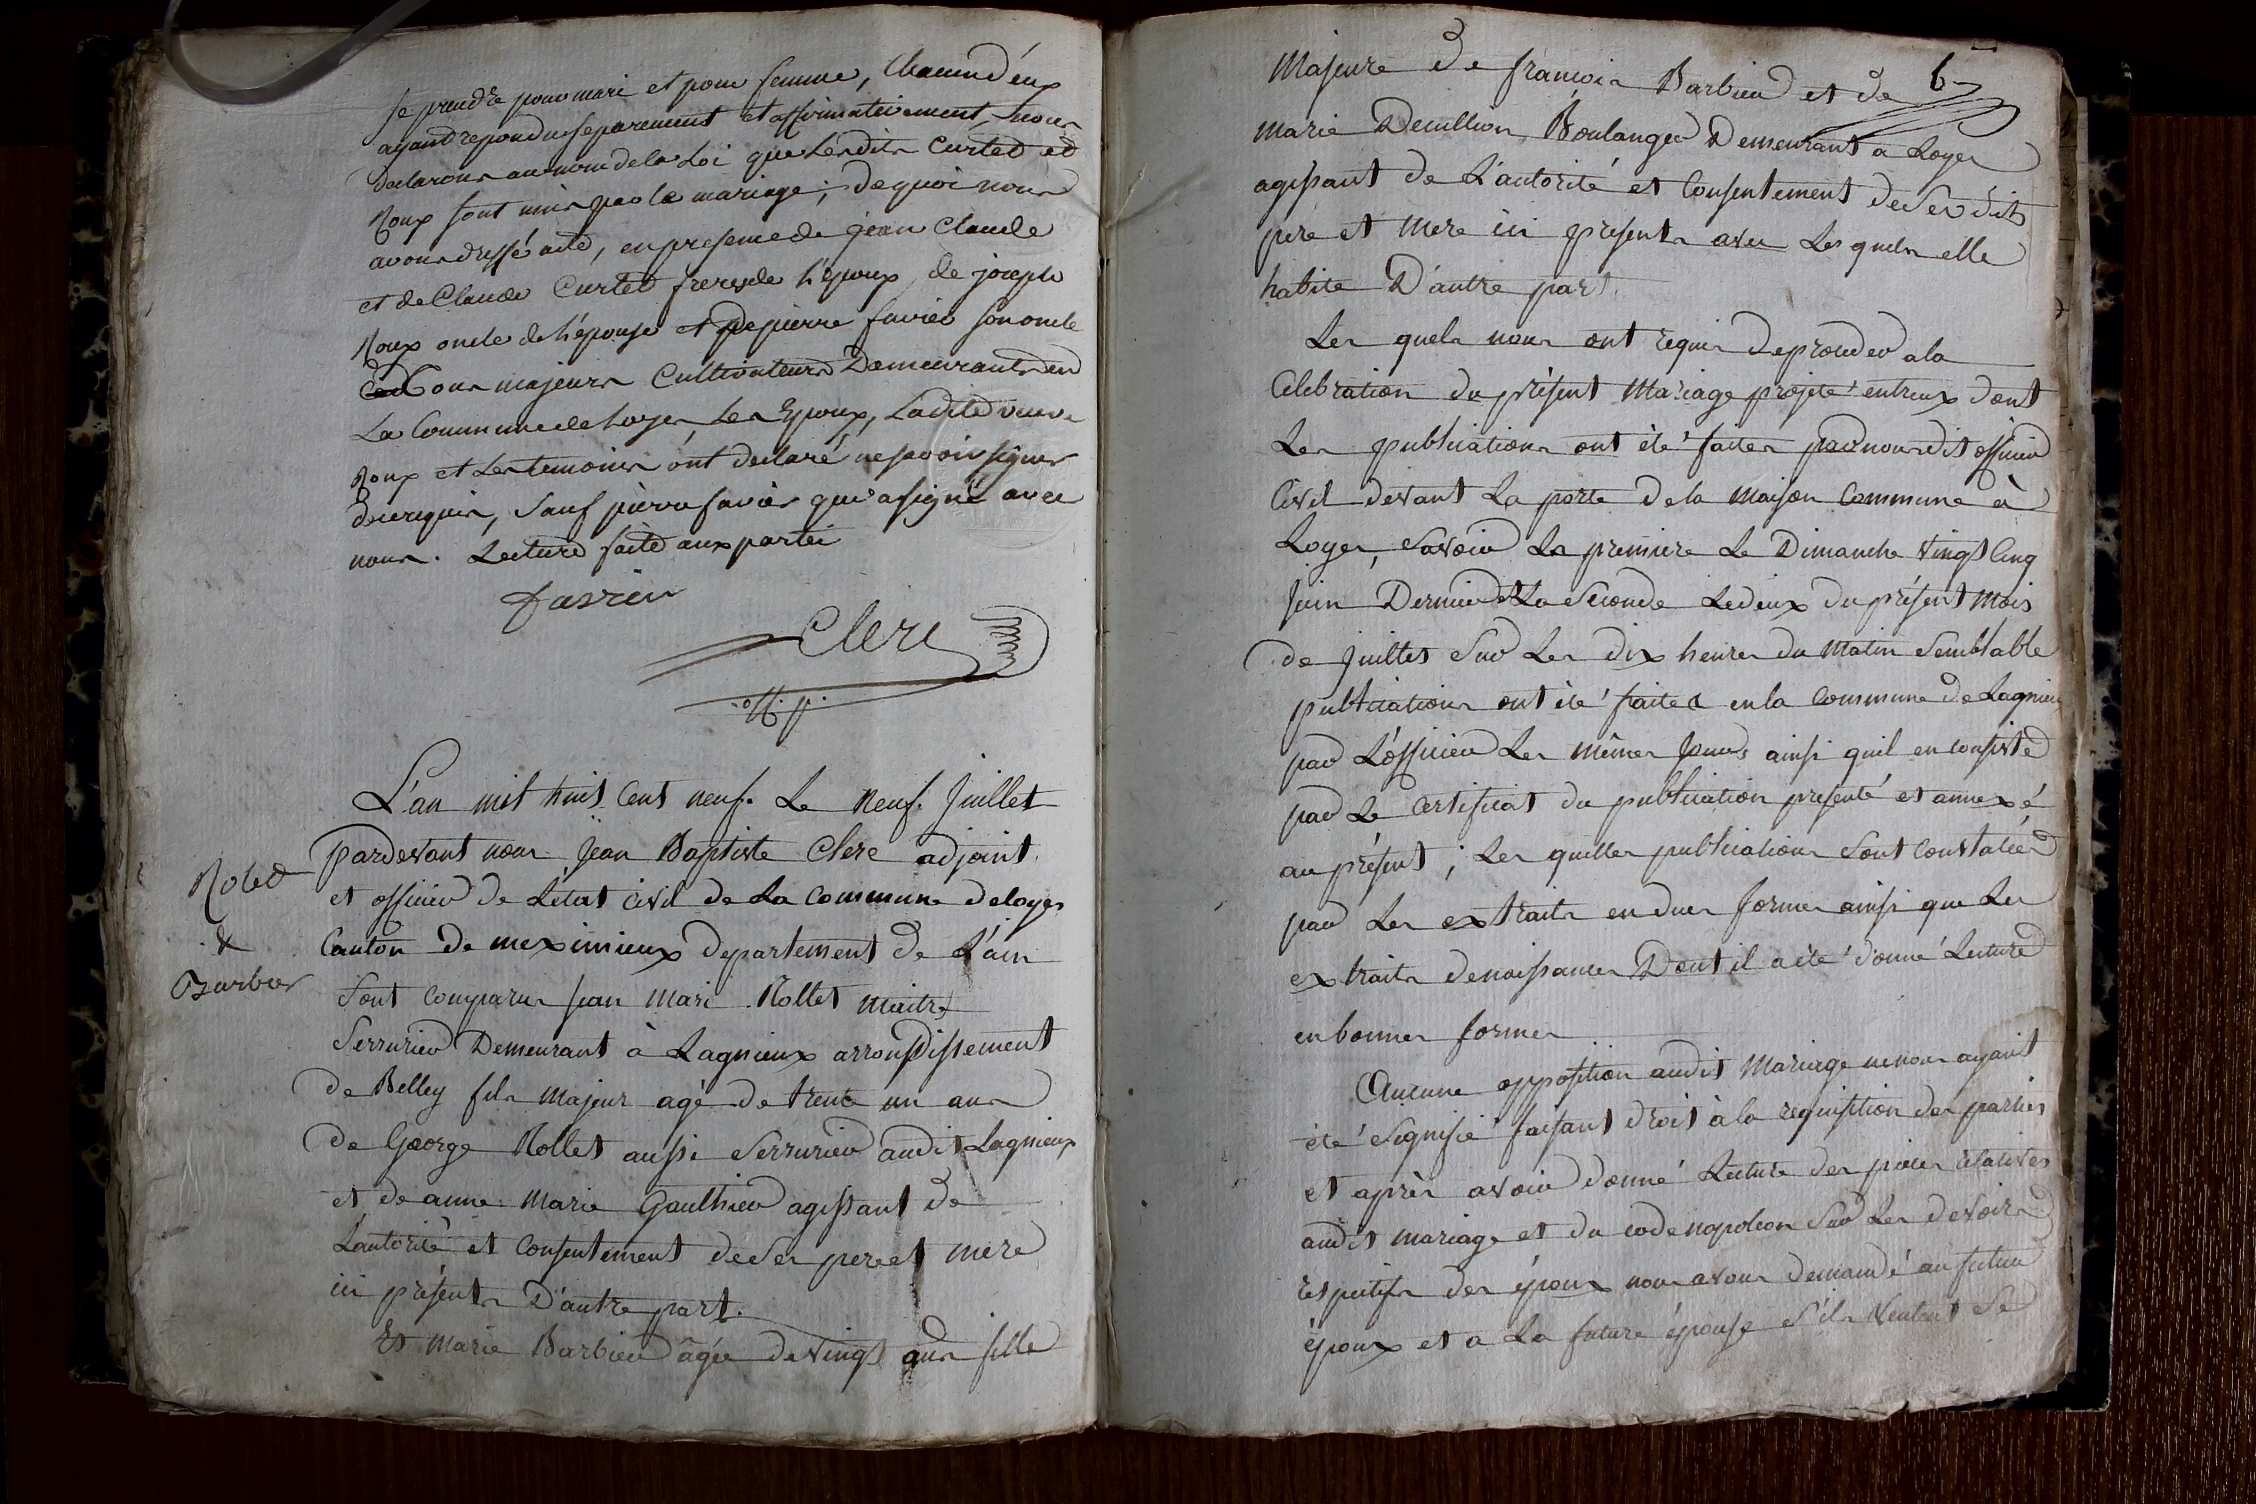 se prendre pour mari et pour femme, Chacun d'eux
ayant repondu separement et affirmativement, nous
declarons au nom de la Loi que Lesdits Curtet et
Roux sont unis par le mariage; de quoi nous
avons dressé acte, en presence de jean Claude
et de Claude Curtet freres de l'Epoux, de joseph
Roux oncle de l'épouse et de pierre favier son oncle
tous majeurs Cultivateurs Demeurants en
La Commune de Loyes, Les Epoux, Ladite veuve
Roux et Les temoins ont declaré ne savoir signer
de ce requis, sauf pierre favier qui a signé avec
nous. Lecture faite aux parties
favrier
Clerc
off. p.
L'an mil huit Cent neuf. Le Neuf Juillet
Pardevant nous Jean Baptiste Clerc adjoint
et officier de L'état Civil de La Commune de loyes
Canton de meximieux departement de L'ain
Sont Comparus Jean Mari Rollet Maitre
Serrurier Demeurant à Lagnieux arrondissement
de Belley fils Majeur agé de trente un ans
de George Rollet aussi Serrurier audit Lagnieux
et de anne Marie Gaulthier agissant de
L'autorité et Consentement de Ses pere et mere
ici présents D'autre part.
Et Marie Barbier âgée de Vingt ans fille
Rolet
&
Barbier
6
Majeure de francois Barbier et de
Marie Decullion Boulanger Demeurant a Loyes
agissant de L'autorité et Consentement de Ses dits
pere et Mere ici presents avec Les quels elle
habite D'autre part.
Les quels nous ont requis de proceder a la
Celebration du présent Mariage projeté entreux dont
Les publications ont été faites par nous dit officier
Civil devant La porte de la Maison Commune à
Loyes, savoir La premiere Le Dimanche Vingt Cinq
Juin Dernier et La Seconde Le deux du présent Mois
de Juillet Sur Les dix heures du Matin Semblable
publications ont été faites en la Commune de Lagnieu
par L'officier Les mêmes Jours ainsi quil en consiste
par Le Certificat du publication presenté et annexé
au présent; Les quelles publications Sont Constatées
par Les extraits en dues formes ainsi que Les
extraits de naissances Dont il a été donné Lecture
en bonnes formes
Aucune opposition audit Mariage ne nous ayant
été Signifié faisant droit à la requisition des parties
et après avoir donné Lecture des pieces relatives
audit mariage et du code napoleon Sur Les devoirs
respectifs des époux nous avons demandé au futur
époux et a La future épouse s'ils Veulent Se